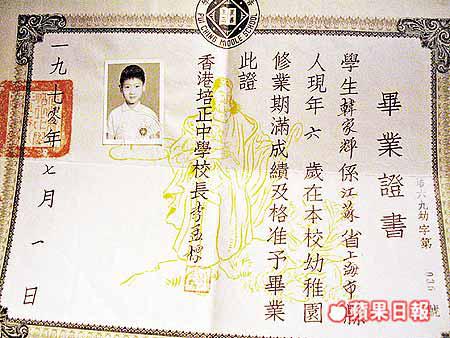 PUI CHING MIDDLE SCHOOL
畢業證書
六九幼字第
號
學生韓家輝係江蘇省上海市縣
人現年六歲在本校幼稚園
修業期滿成績及格准予畢業
此證
香港培正中學校長李孟標
一九七零年七月一日
蘋果日報